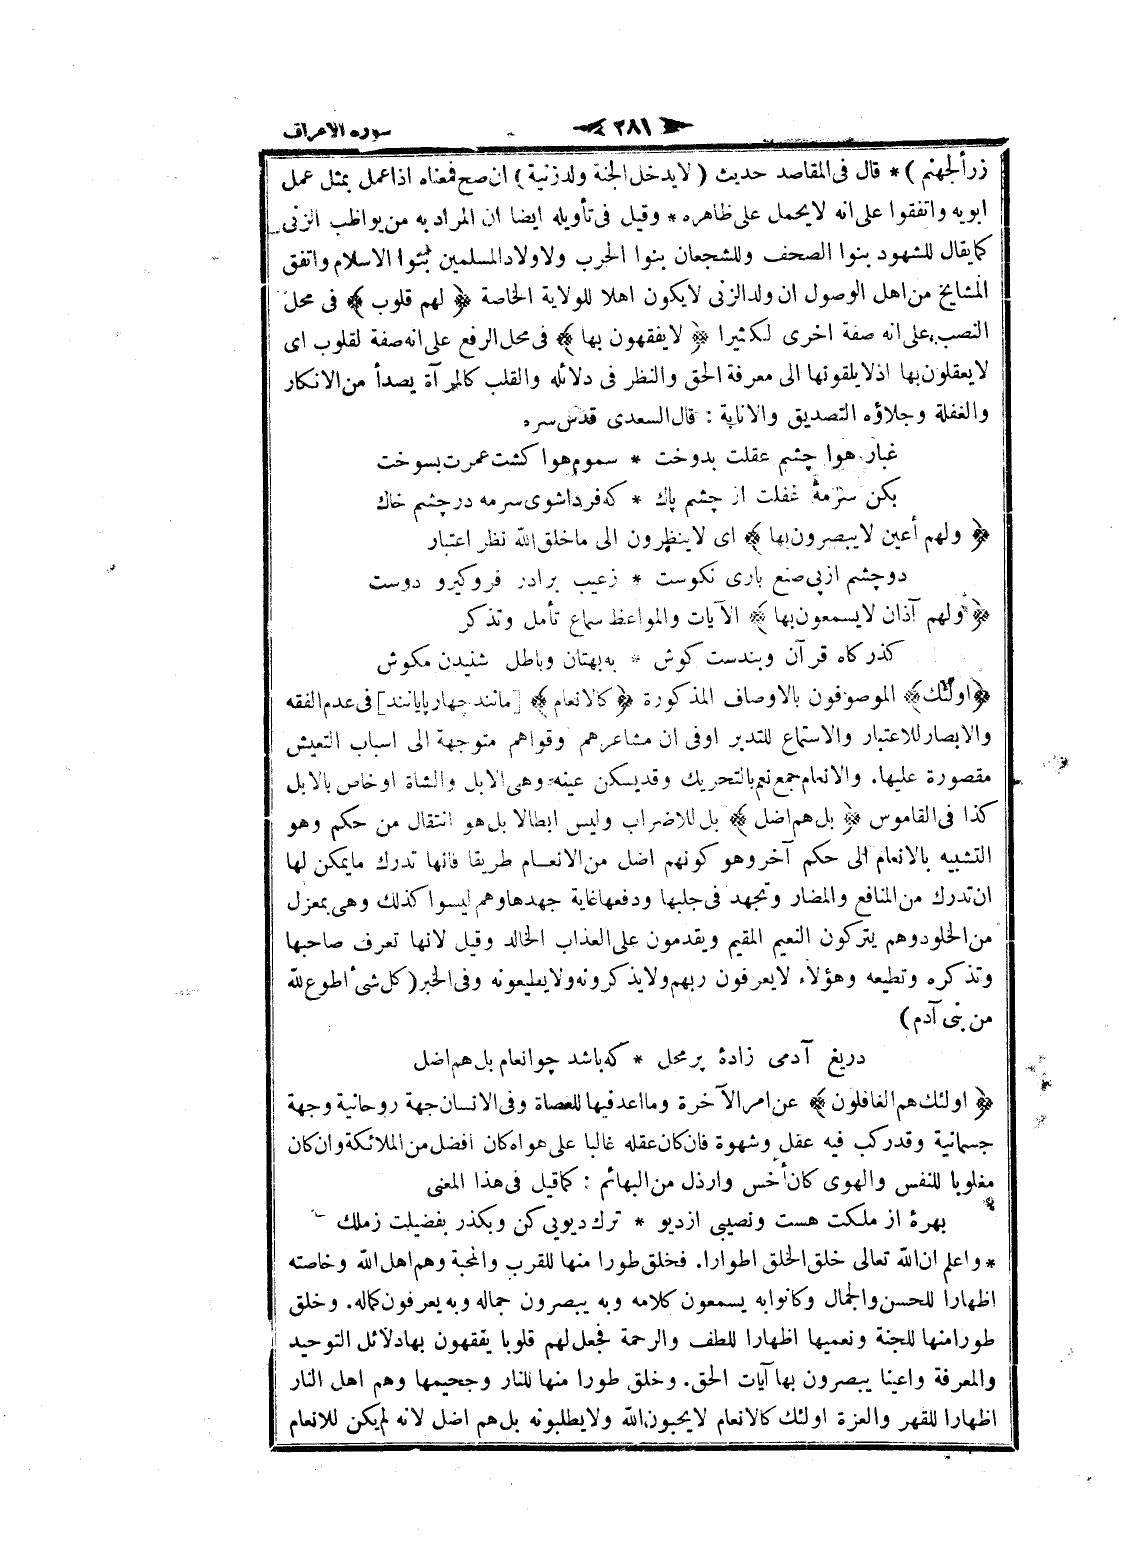 سوره الاعراف ﴿ ٢٨١ ﴾
زرألجهنم ) * قال فى المقاصد حديث ( لايدخل الجنة ولد زنية ) ان صح فمعناه اذا عمل بمثل عمل
ابويه واتفقوا على انه لايحمل على ظاهره * وقيل فى تأويله ايضا ان المراد به من يواظب الزنى
كما يقال للشهود بنوا الصحف وللشجعان بنوا الحرب ولاولاد المسلمين بنوا الاسلام واتفق
المشايخ من اهل الوصول ان ولد الزنى لايكون اهلا للولاية الخاصة ﴿ لهم قلوب ﴾ فى محل
النصب على انه صفة اخرى لكثيرا ﴿ لايفقهون بها ﴾ فى محل الرفع على انه صفة لقلوب اى
لايعقلون بها اذ لايلقونها الى معرفة الحق والنظر فى دلائله والقلب كالمرآة يصدأ من الانكار
والغفلة وجلاؤه التصديق والانابة : قال السعدى قدس سره
غبار هوا چشم عقلت بدوخت * سموم هوا كشت عمرت بسوخت
بكن سرمۀ غفلت از چشم پاك * كه فردا شوى سرمه در چشم خاك
﴿ ولهم أعين لايبصرون بها ﴾ اى لاينظرون الى ماخلق الله نظر اعتبار
دو چشم ازپى صنع بارى نكوست * زعيب برادر فرو كيرو دوست
﴿ ولهم آذان لايسمعون بها ﴾ الآيات والمواعظ سماع تأمل وتذكر
كذركاه قرآن وبندست كوش * به بهتان وباطل شنيدن مكوش
﴿ اولئك ﴾ الموصوفون بالاوصاف المذكورة ﴿ كالانعام ﴾ [مانند چهار پايانند] فى عدم الفقه
والابصار للاعتبار والاستماع للتدبر اوفى ان مشاعرهم وقواهم متوجهة الى اسباب التعيش
مقصورة عليها. والانعام جمع نعم بالتحريك وقد يسكن عينه وهى الابل والشاة او خاص بالابل
كذا فى القاموس ﴿ بل هم اضل ﴾ بل للاضراب وليس ابطالا بل هو انتقال من حكم وهو
التشبيه بالانعام الى حكم آخر وهو كونهم اضل من الانعـام طريقا فانها تدرك مايمكن لها
ان تدرك من المنافع والمضار وتجهد فى جلبها ودفعها غاية جهدها وهم ليسوا كذلك وهى بمعزل
من الخلود وهم يتركون النعيم المقيم ويقدمون على العذاب الخالد وقيل لانها تعرف صاحبها
وتذكره وتطيعه وهؤلاء لايعرفون ربهم ولايذكرونه ولايطيعونه وفى الخبر ( كل شىء اطوع لله
من بنى آدم)
دريغ آدمى زادۀ پرمحل * كه باشد چو انعام بل هم اضل
﴿ اولئك هم الغافلون ﴾ عن امر الآخرة وما اعد فيها للعصاة وفى الانسان جهة روحانية وجهة
جسمانية وقد ركب فيه عقل وشهوة فان كان عقله غالبا على هواه كان افضل من الملائكة وان كان
مغلوبا للنفس والهوى كان أخس وارذل من البهائم : كما قيل فى هذا المعنى
بهرۀ از ملكت هست ونصيبى ازديو * ترك ديويى كن وبكذر بفضيلت زملك
* واعلم ان الله تعالى خلق الخلق اطوارا. فخلق طورا منها للقرب والمحبة وهم اهل الله وخاصته
اظهارا للحسن والجمال وكانوا به يسمعون كلامه وبه يبصرون جماله وبه يعرفون كماله. وخلق
طورا منها للجنة ونعميها اظهارا للطف والرحمة فجعل لهم قلوبا يفقهون بها دلائل التوحيد
والمعرفة واعينا يبصرون بها آيات الحق. وخلق طورا منها للنار وجحيمها وهم اهل النار
اظهارا للقهر والعزة اولئك كالانعام لايحبون الله ولايطلبونه بل هم اضل لانه لم يكن للانعام